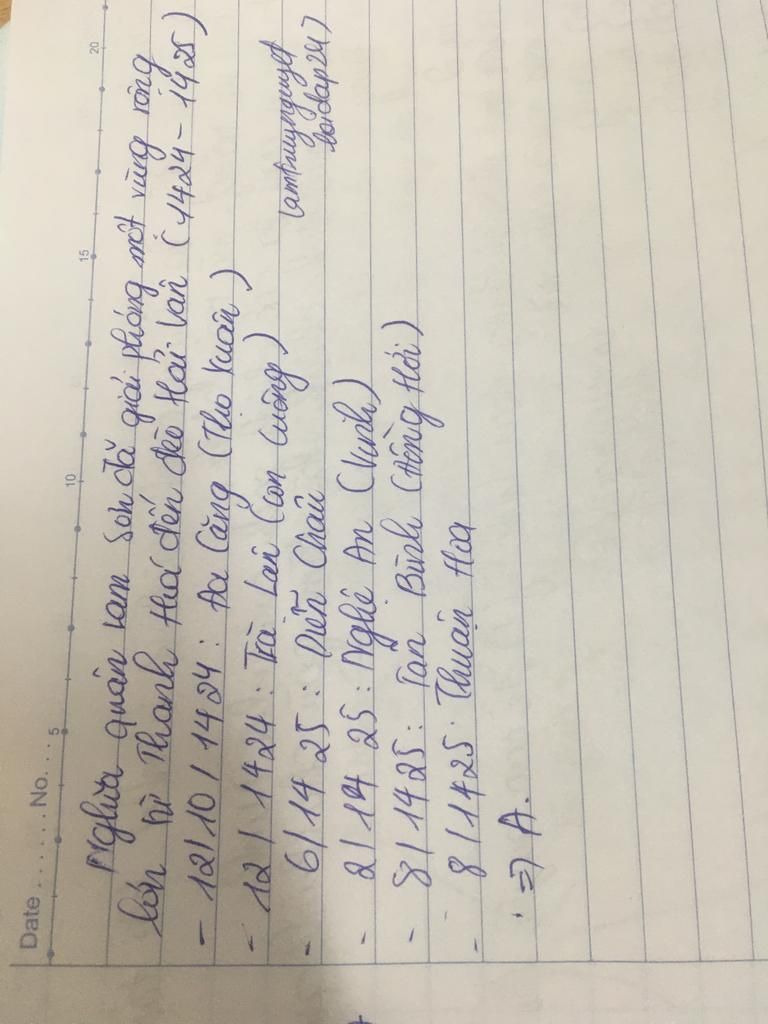 Date ....... No. ...
5 10 15 20
Nghĩa quân Lam Sơn đã giải phóng một vùng rộng
lớn từ Thanh Hoá đến đèo Hải Vân (1424 - 1425)
- 12/10/1424: Đa Căng (Thọ Xuân)
- 12/1424: Trà Lân (Con Cuông)
lamtruynguyet
loidap247
- 6/1425: Diễn Châu
- 2/1425: Nghệ An (Vinh)
- 8/1425: Tân Bình (Đồng Hới)
- 8/1425: Thuận Hoá
=> A.